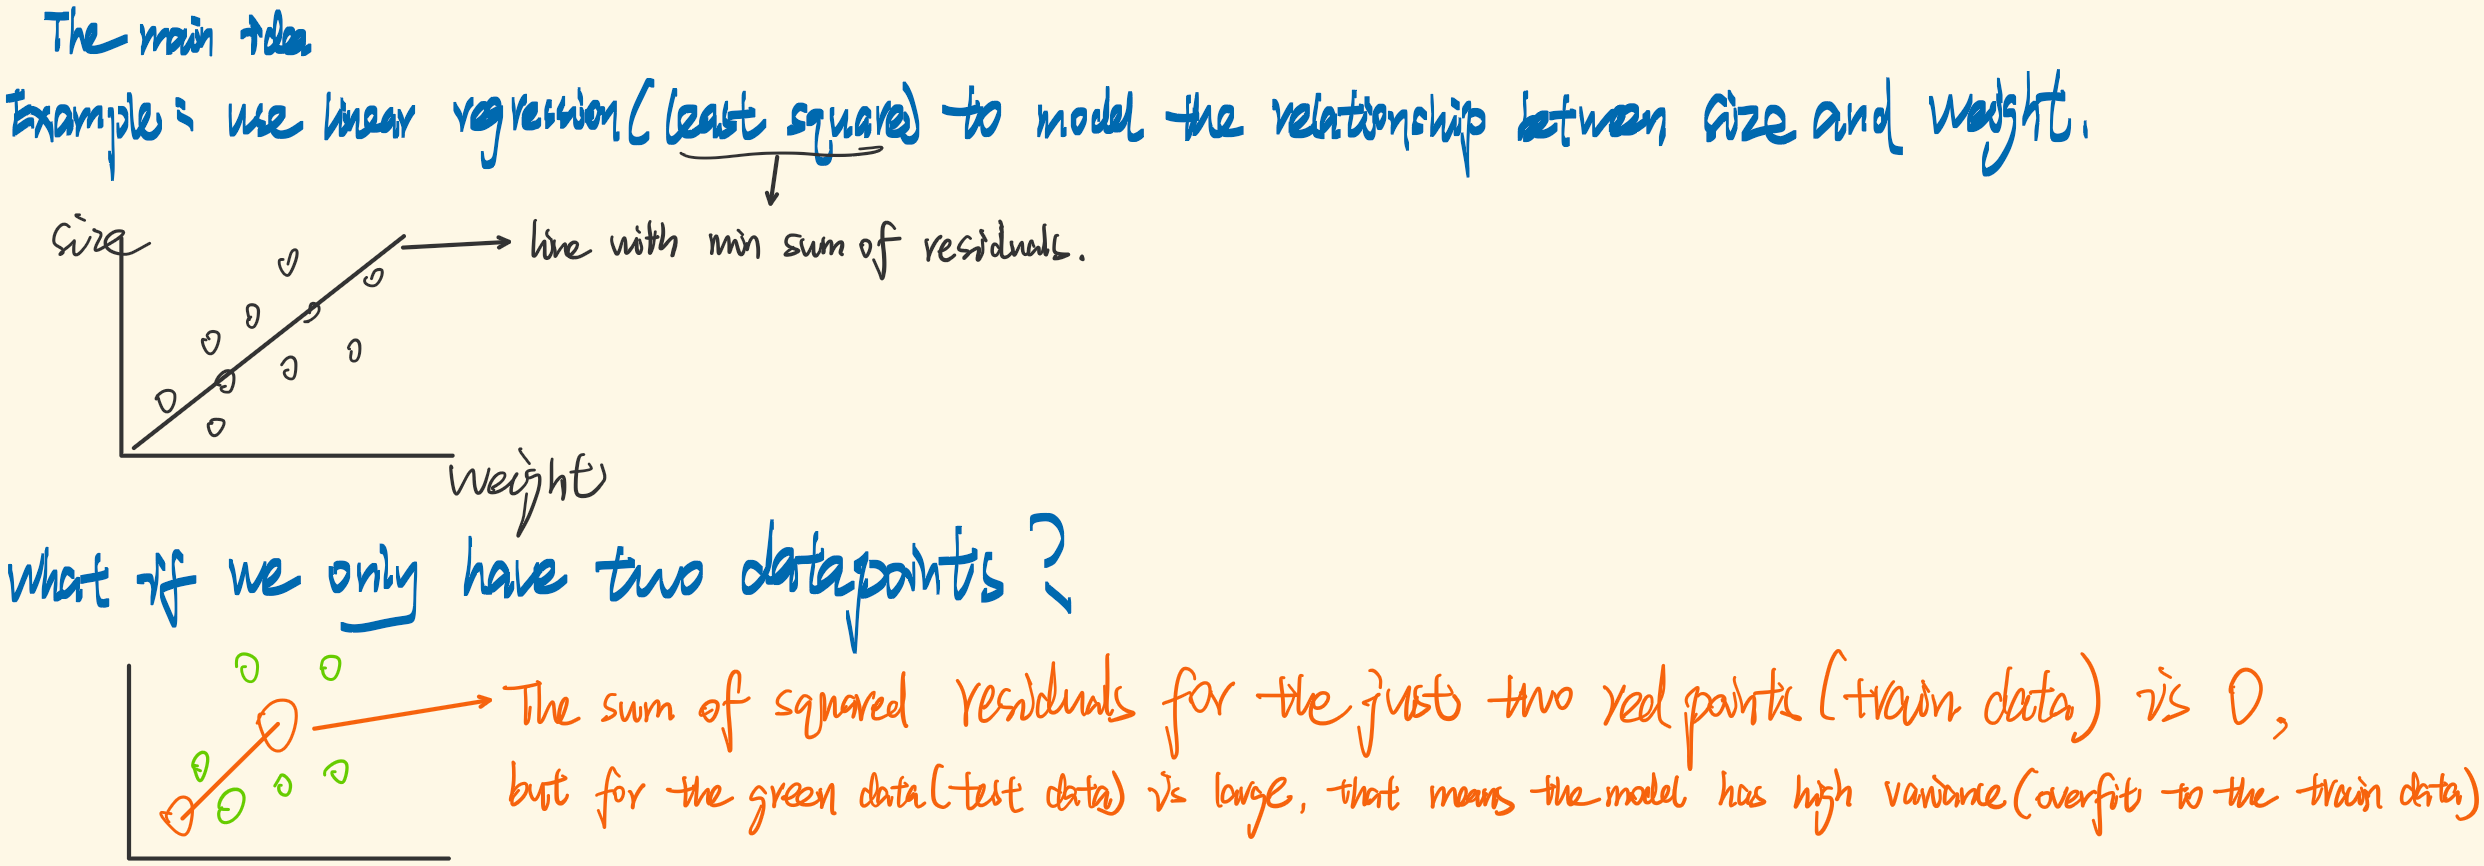 The main idea
Example: use linear regression (least square) to model the relationship between size and weight.
size
line with min sum of residuals.
weight
what if we only have two datapoints?
The sum of squared residuals for the just two red points (train data) is 0,
but for the green data (test data) is large, that means the model has high variance (overfit to the train data)